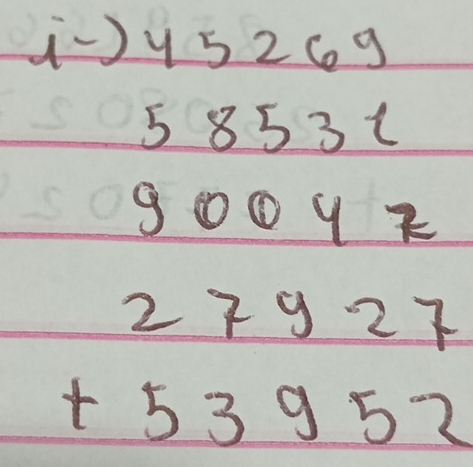 i-) 45269
58531
90047
27927
+ 53952